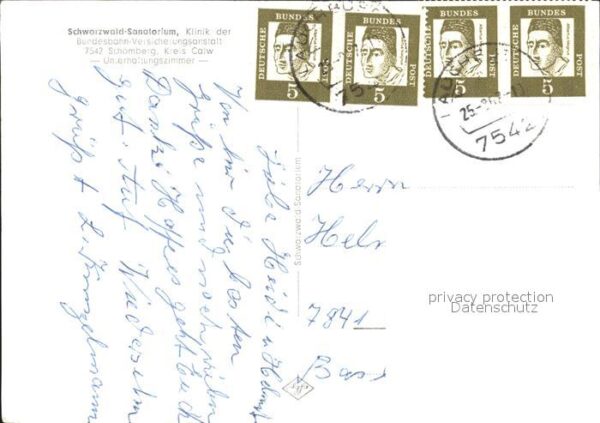 Schwarzwald-Sanatorium, Klinik der
Bundesbahn-Versicherungsanstalt
7542 Schömberg, Kreis Calw
— Unterhaltungszimmer —
DEUTSCHE BUNDES POST 5
DEUTSCHE BUNDES POST 5
DEUTSCHE BUNDES POST 5
DEUTSCHE BUNDES POST 5
7542
Schwarzwald Sanatorium
Liebe Heidi u. Helmut
Von hier die besten
Grüße und noch vielen
Dank. Hoffe es geht Euch
gut. Auf Wiedersehn
grüßt
Herrn
7841
privacy protection
Datenschutz